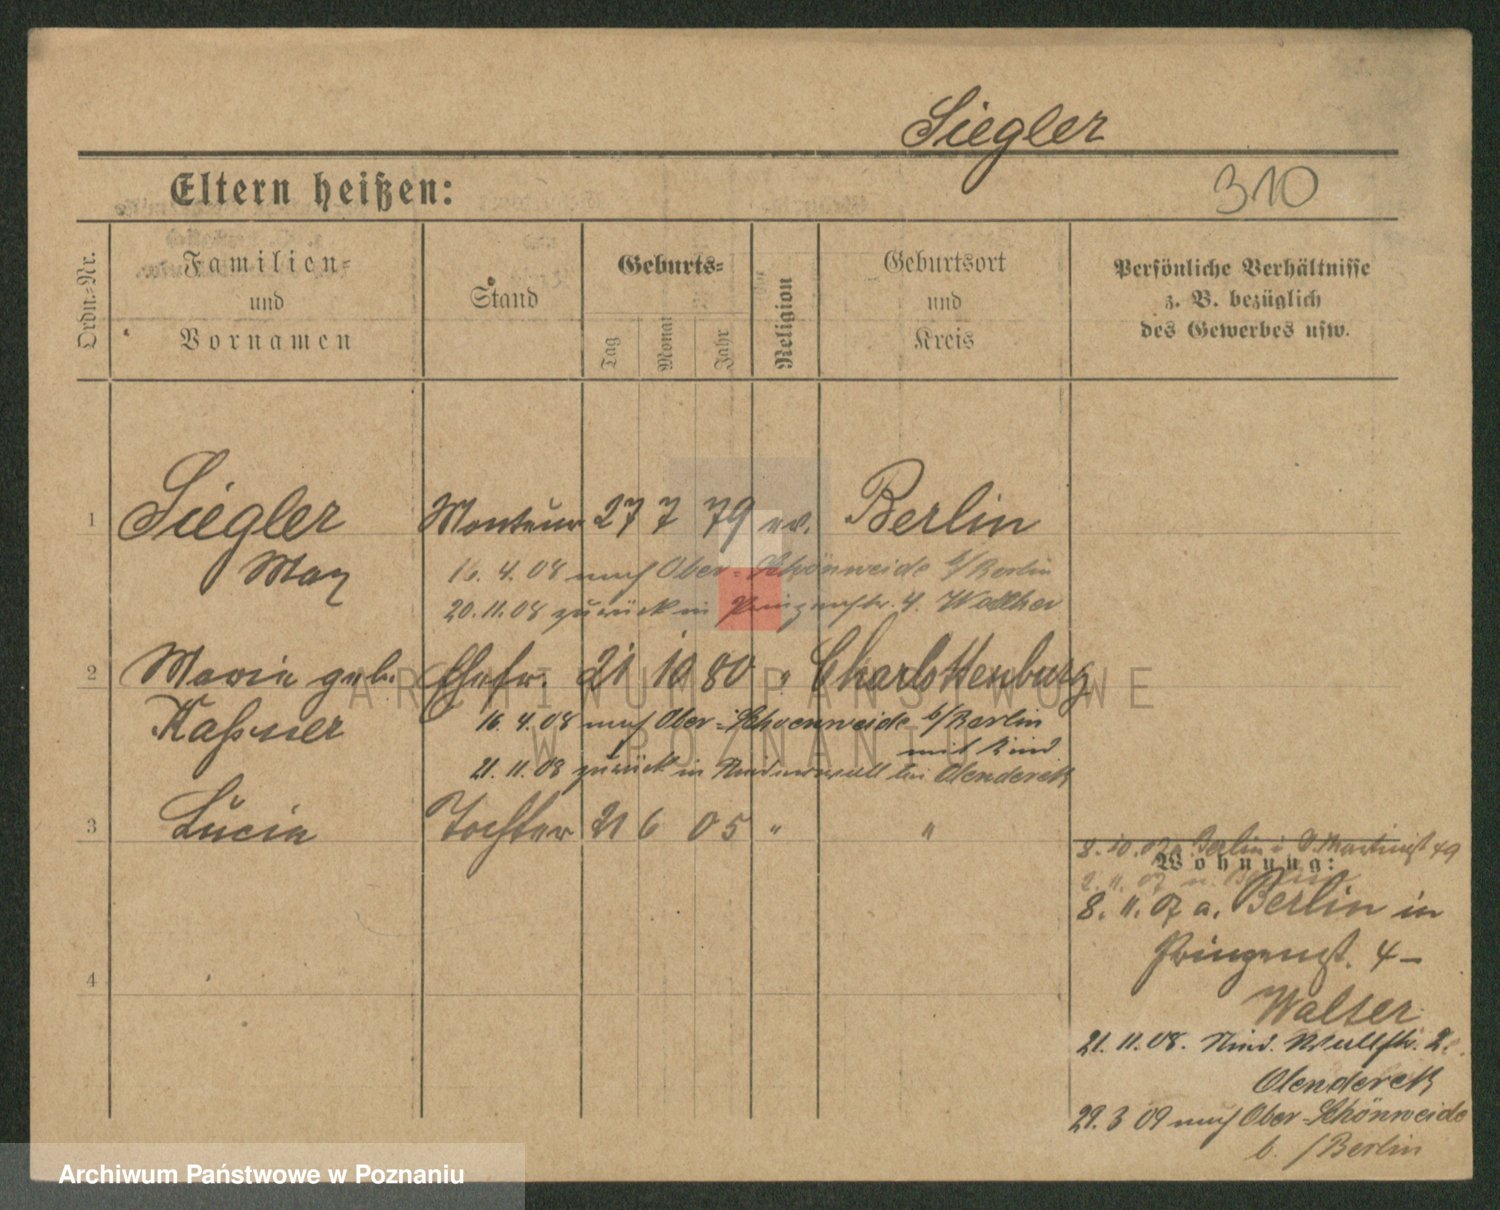 Siegler
Eltern heißen:
310
Ordn.-Nr.
Familien-
und
Vornamen
Stand
Geburts-
Tag
Monat
Jahr
Religion
Geburtsort
und
Kreis
Persönliche Verhältnisse
z. B. bezüglich
des Gewerbes usw.
1 Siegler Monteur 27 7 79 ev. Berlin
Max
16. 4. 08 nach Ober-Schönweide b/Berlin
20. 11. 08 zurück in Prinzenstr. 4. Walther
2 Maria geb. Ehefr. 21 10 80 " Charlottenburg
Kaßner
16. 4. 08 nach Ober-Schoenweide b/Berlin
mit Kind
21. 11. 08 zurück in Niederwall bei Olendereck
3 Lucia Tochter 21 6 05 " "
4
8. 10. 07 a Berlin i St. Martinst 49
Wohnung:
2. 11. 07 n. Berlin
8. 11. 07 a. Berlin in
Prinzenst. 4 –
Walter
21. 11. 08. Nied. Wallstr. 2.
Olendereck
29. 3 09 nach Ober-Schönweide
b. /Berlin
ARCHIWUM PAŃSTWOWE
W POZNANIU
Archiwum Państwowe w Poznaniu